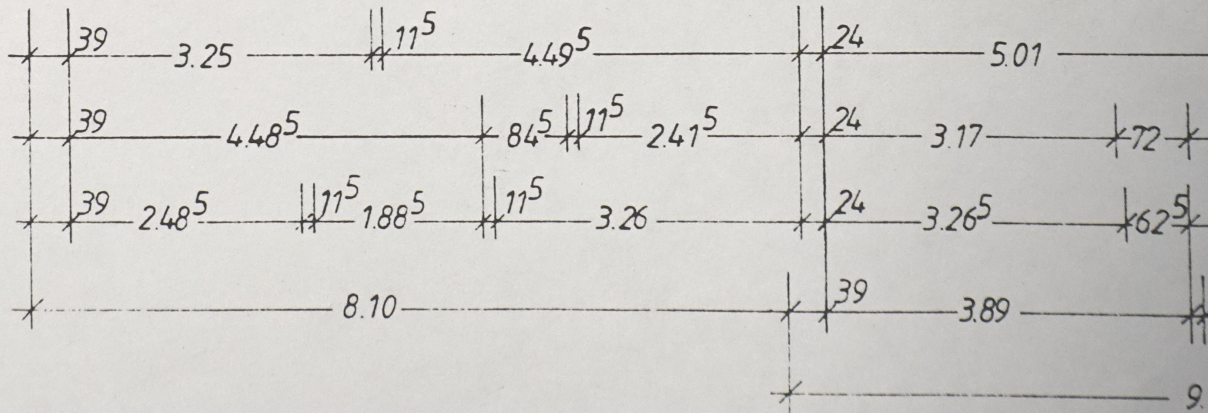 39 3.25 11⁵ 4.49⁵ 24 5.01
39 4.48⁵ 84⁵ 11⁵ 2.41⁵ 24 3.17 72
39 2.48⁵ 11⁵ 1.88⁵ 11⁵ 3.26 24 3.26⁵ 62⁵
8.10 39 3.89
9.